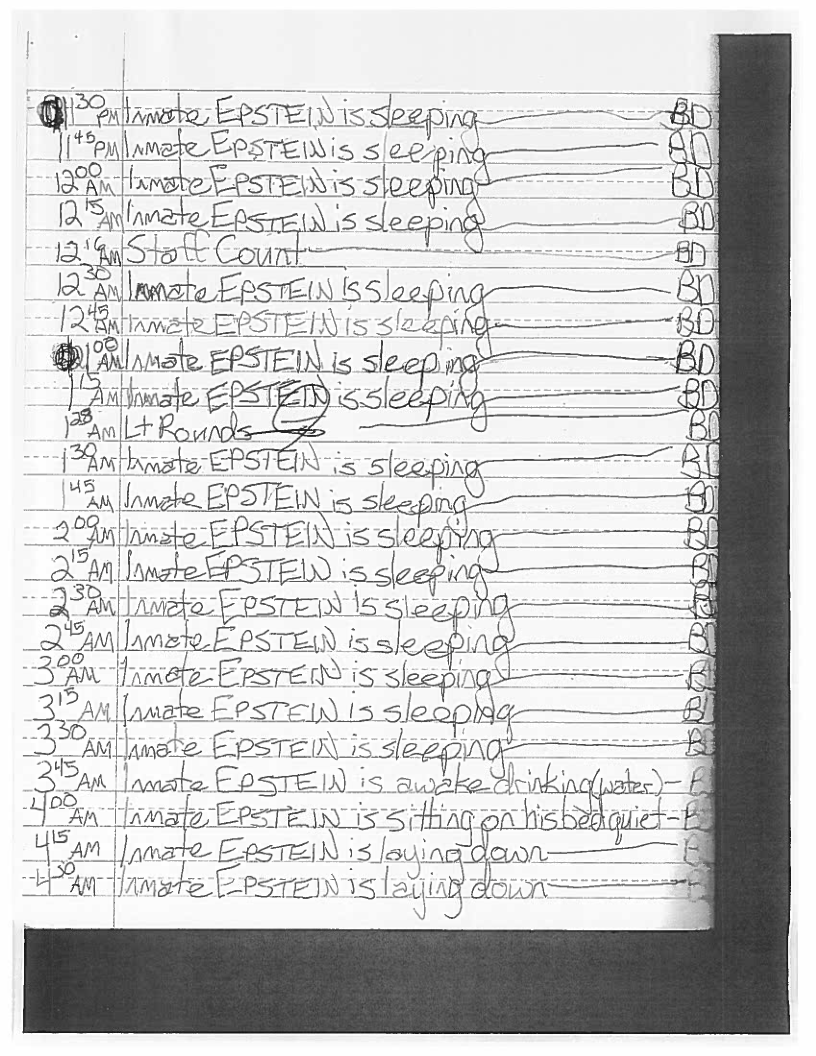 11 30 PM Inmate EPSTEIN is sleeping BD
11 45 PM Inmate EPSTEIN is sleeping BD
12 00 AM Inmate EPSTEIN is sleeping BD
12 15 AM Inmate EPSTEIN is sleeping BD
12 16 AM Staff Count BD
12 30 AM Inmate EPSTEIN is sleeping BD
12 45 AM Inmate EPSTEIN is sleeping BD
1 00 AM Inmate EPSTEIN is sleeping BD
1 15 AM Inmate EPSTEIN is sleeping BD
1 28 AM Lt Rounds BD
1 30 AM Inmate EPSTEIN is sleeping BD
1 45 AM Inmate EPSTEIN is sleeping BD
2 00 AM Inmate EPSTEIN is sleeping BD
2 15 AM Inmate EPSTEIN is sleeping BD
2 30 AM Inmate EPSTEIN is sleeping B
2 45 AM Inmate EPSTEIN is sleeping B
3 00 AM Inmate EPSTEIN is sleeping B
3 15 AM Inmate EPSTEIN is sleeping B
3 30 AM Inmate EPSTEIN is sleeping B
3 45 AM Inmate EPSTEIN is awake drinking (water)
4 00 AM Inmate EPSTEIN is sitting on his bed quiet
4 15 AM Inmate EPSTEIN is laying down
4 30 AM Inmate EPSTEIN is laying down